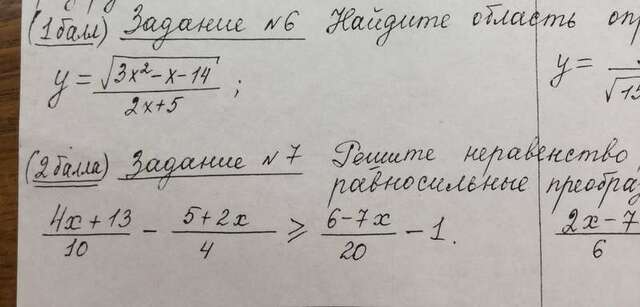 (1 балл) Задание №6 Найдите область
y = √(3x² - x - 14) / (2x + 5) ; y = √15
(2 балла) Задание №7 Решите неравенство,
равносильные
(4x + 13)/10 - (5 + 2x)/4 ⩾ (6 - 7x)/20 - 1. (2x - 7)/6